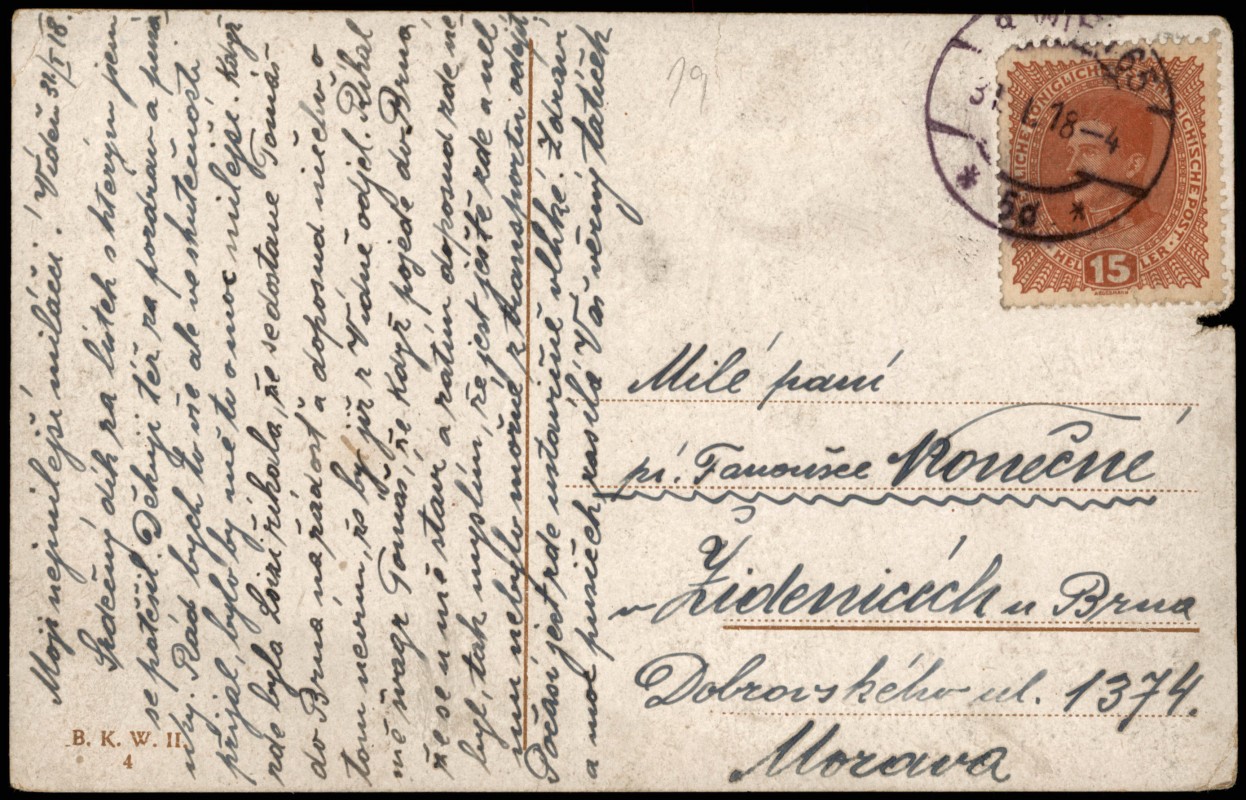 Moji nejmilejší miláčci! Vídeň 31/I 18.
Srdečný dík za lístek s kterým jsem
se potěšil. Děkuji též za pozdrav a
Rád bych to vše ale ve skutečnosti
přijal, bylo by mě to o moc milejší. Když
zde byla Loizi říkala, že se dostane Tomáš
do Brna na žádosť a doposud ničeho o
tom nevím, že by již z Vídně odjel. Říkal
mě švagr Tomáš, že když pojede do Brna
že se u mě staví a zatím doposud zde ne-
byl, tak myslím, že jest ještě zde a nel
mu nebylo možné z transportu odejít
Počasí jest zde ustavičně vlhké. Zdraví
a moc pusiček zasílá Váš věrný tatíček
19
31. I. 18-4
* 5d *
KÖNIGLICHE
REICHISCHE POST
HELLER
15
Milé paní
pí. Fanoušce Konečné
v Židenicích u Brna
Dobrovského ul. 1374.
Morava
B. K. W. II.
4